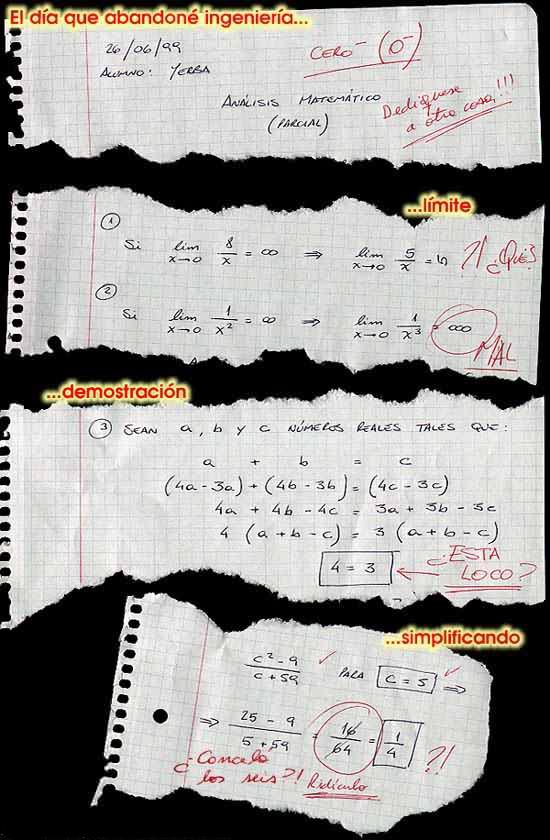 El día que abandoné ingeniería...
26/06/99
CERO⁻ (0⁻)
ALUMNO: YERBA
ANÁLISIS MATEMÁTICO
(PARCIAL)
Dediquese
a otra cosa!!!
...límite
①
Si lim x→0 8/x = ∞ ⇒ lim x→0 5/x = ഗ ?! ¿QUÉ?
②
Si lim x→0 1/x² = ∞ ⇒ lim x→0 1/x³ = ∞∞
MAL
...demostración
③ SEAN a, b y c NÚMEROS REALES TALES QUE:
a + b = c
(4a - 3a) + (4b - 3b) = (4c - 3c)
4a + 4b - 4c = 3a + 3b - 3c
4 (a + b - c) = 3 (a + b - c)
4 = 3 ← ¿ESTA
LOCO?
...simplificando
c² - 9 / c + 59 ✓ PARA c = 5 ✓ ⇒
⇒ 25 - 9 / 5 + 59 = 16/64 = 1/4 ?!
¿Canceló
los seis?! Ridículo